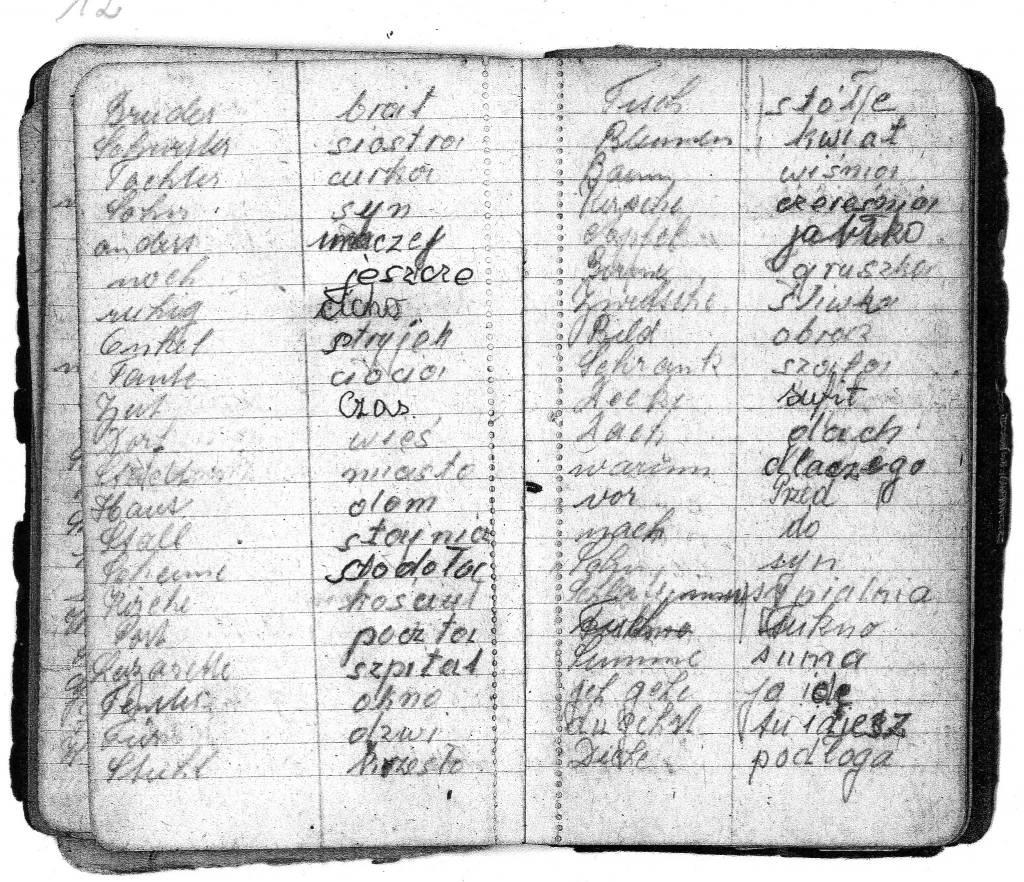 12
Bruder brat
Schwester siostra
Tochter curka
Sohn syn
anders inaczej
noch jeszcze
ruhig cicho
Onkel stryjek
Tante ciocia
Zeit Czas
Dorf wieś
miasto
Haus dom
Stall stajnia
Scheune stodoła
Kirche kościuł
Post poczta
Lazarette szpital
Fenster okno
Tür dzwi
Stuhl krzesło
Tisch stół
Blumen kwiat
Baum wiśnia
Kirsche czereśnia
Äpfel jabłko
Birne gruszka
Zwetsche śliwka
Bild obraz
Schrank szafa
Decke sufit
Dach dach
warum dlaczego
vor Przed
nach do
Sohn syn
Schlafzimmer sypialnia
Sukno
Summe suma
ich gehe ja idę
du gehst tu idjesz
Diele podłoga